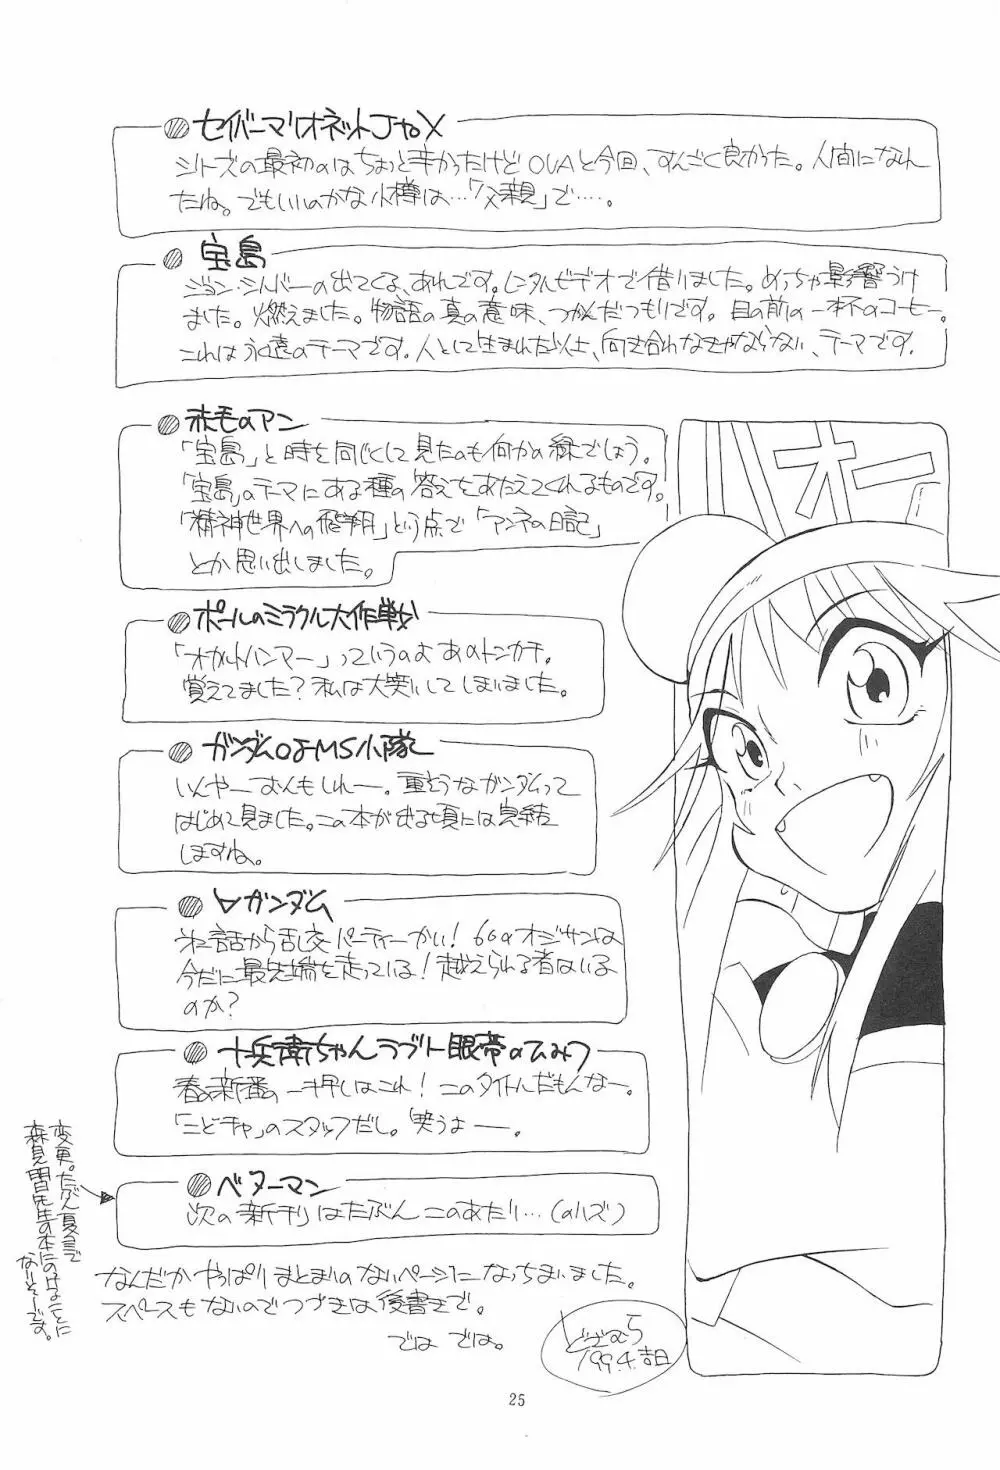 セイバーマリオネットJtoX
シリーズの最初のはちょっと辛かったけどOVAと今回、すんごく良かった。人間になれ
たね。でもいいのかな小樽は…「父親」で….
宝島
ジョン・シルバーの出てくる、あれです。レンタルビデオで借りました。めっちゃ影響うけ
ました。燃えました。物語の真の意味、つかんだつもりです。目の前の一杯のコーヒー。
これは永遠のテーマです。人として生まれた以上、向き合わなきゃならない、テーマです.
赤毛のアン
「宝島」と時を同じくして見たのも何かの縁でしょう。
「宝島」のテーマにある種の答えをあたえてくれるものです。
「精神世界への飛翔」という点で「アンネの日記」
とか思い出しました。
ポールのミラクル大作戦
「オカルトハンマー」っていうのよ あのトンカチ。
覚えてました?私は大笑いしてしまいました。
ガンダム08MS小隊
いんやー おんもしれー。重そうなガンダムって
はじめて見ました。この本が出る頃には完結
しますね。
∀ガンダム
第二話から乱交パーティーかい!60のオジサンは
今だに最先端を走っている!越えられる者はいる
のか?
十兵衛ちゃんラブリー眼帯のひみつ
春の新番の一押しはこれ!このタイトルだもんなー。
「こどチャ」のスタッフだし。笑うよー。
ベターマン
次の新刊はたぶんこのあたり…(のハズ)
変更。たぶん夏全で
森見明日先生の本にのせることに
なりそーです。
なんだかやっぱりまとまりのないページになっちまいました。
スペースもないのでつづきは後書きで。
では では。
どざむら
1999.4.吉日
オー
25